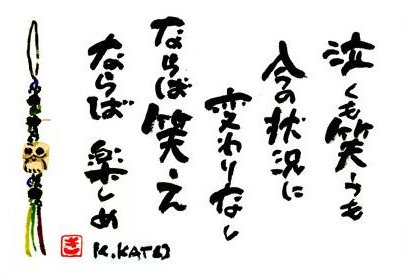 泣くも笑うも
今の状況に
変わりなし
ならば笑え
ならば楽しめ
K.KATO